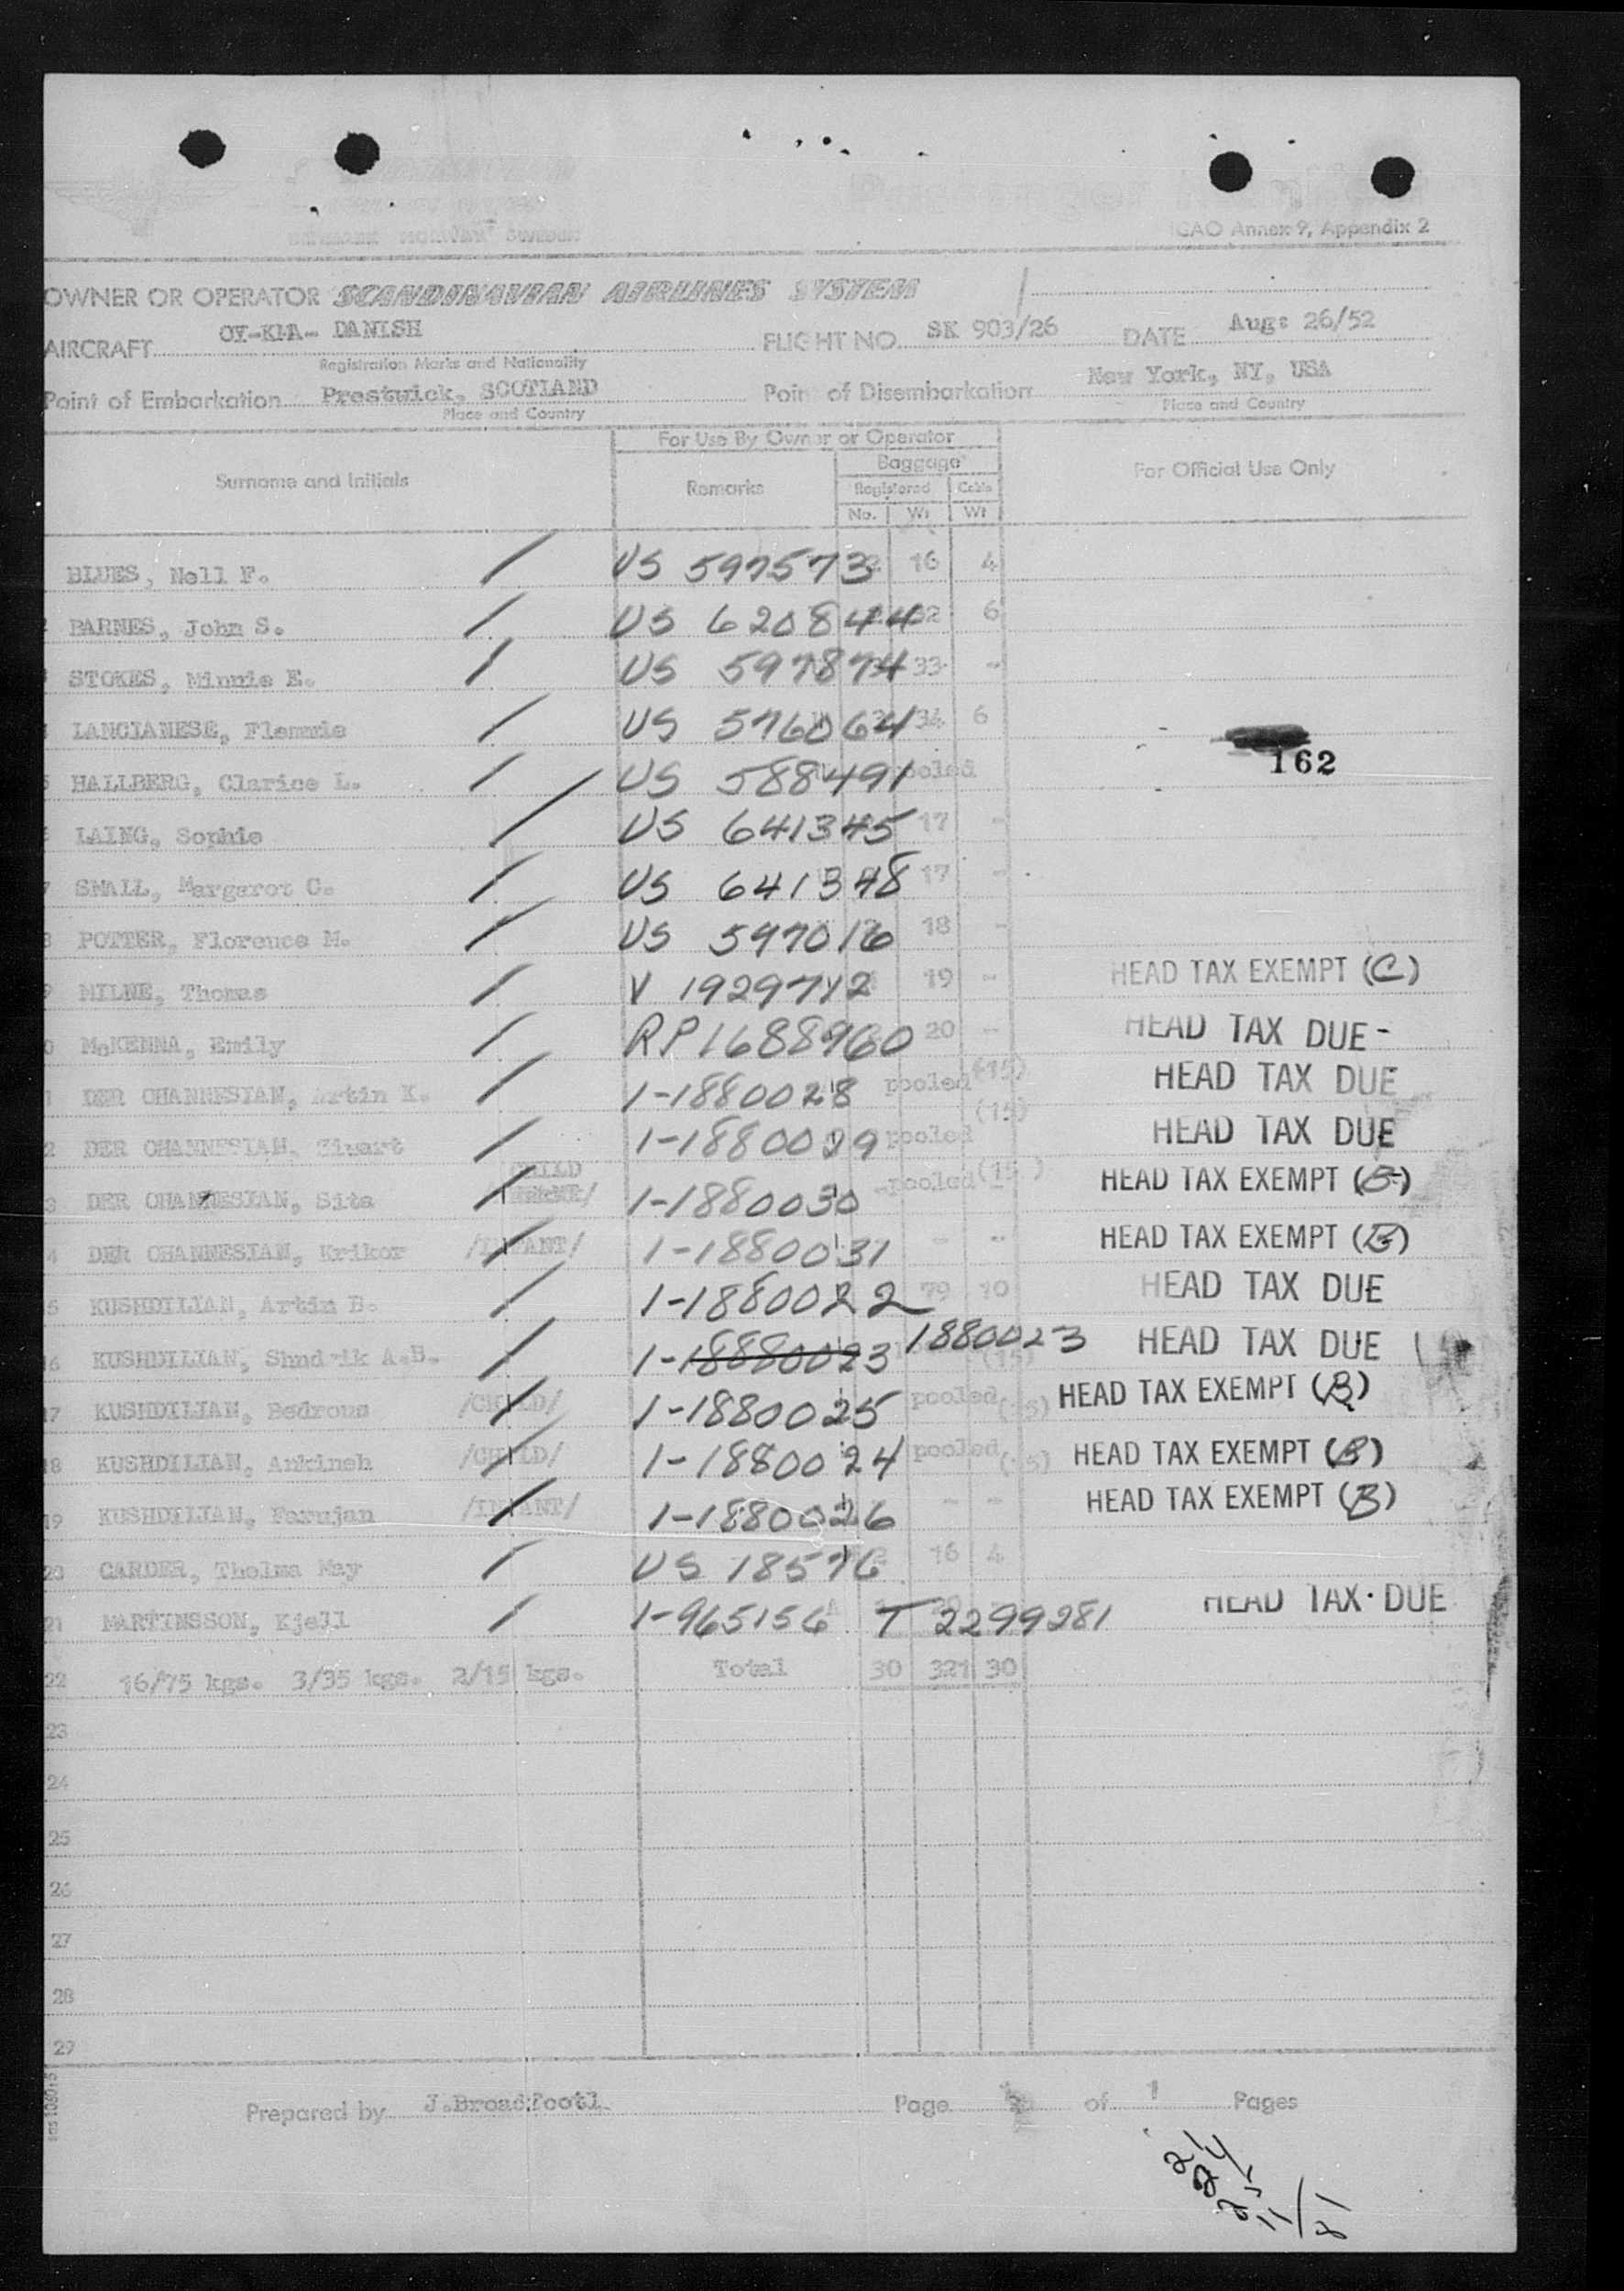 DENMARK NORWAY SWEDEN
ICAO Annex 9, Appendix 2
OWNER OR OPERATOR SCANDINAVIAN AIRLINES SYSTEM
AIRCRAFT OY-KLA- DANISH FLIGHT NO. SK 903/26 DATE Aug: 26/52
Registration Marks and Nationality
Point of Embarkation Prestwick, SCOTLAND Point of Disembarkation New York, NY, USA
Place and Country Place and Country
For Use By Owner or Operator
Surname and Initials Remarks Baggage For Official Use Only
Registered Cabin
No. Wt Wt
BLUES, Nell F. / US 597573 16 4
BARNES, John S. / US 620844 6
STOKES, Minnie E. / US 597874 33 -
LANCIANESE, Flemmie / US 576064 34 6
162
HALLBERG, Clarice L. / US 588491 pooled
LAING, Sophie / US 641345 17 -
SMALL, Margaret C. / US 641348 17 -
POTTER, Florence M. / US 597016 18 -
MILNE, Thomas / V 1929712 19 - HEAD TAX EXEMPT (C)
McKENNA, Emily / RP1688960 20 - HEAD TAX DUE-
DER OHANNESIAN, Artin K. / 1-1880028 pooled (15) HEAD TAX DUE
2 DER OHANNESIAN, / 1-1880029 pooled (15) HEAD TAX DUE
3 DER OHANNESIAN, Sita CHILD / 1-1880030 pooled (15) HEAD TAX EXEMPT (B)
4 DER OHANNESIAN, Krikor /INFANT/ 1-1880031 - - HEAD TAX EXEMPT (B)
5 KUSHDILIAN, Artin B. / 1-1880022 79 10 HEAD TAX DUE
6 KUSHDILIAN, A.B. / 1-18880023 1880023 (15) HEAD TAX DUE
17 KUSHDILIAN, Bedrous /CHILD/ 1-1880025 pooled (15) HEAD TAX EXEMPT (B)
18 KUSHDILIAN, Ankineh /CHILD/ 1-1880024 pooled (15) HEAD TAX EXEMPT (B)
19 KUSHDILIAN, /INFANT/ 1-1880026 - - HEAD TAX EXEMPT (B)
20 CARDER, Thelma May / US 18576 16 4
21 MARTINSSON, Kjell / 1-965156 T 2299281 HEAD TAX DUE
22 16/75 kgs. 3/35 kgs. 2/15 kgs. Total 30 321 30
23
24
25
26
27
28
29
Prepared by J.Broadfoot Page of 1 Pages
21
24
25
11
81